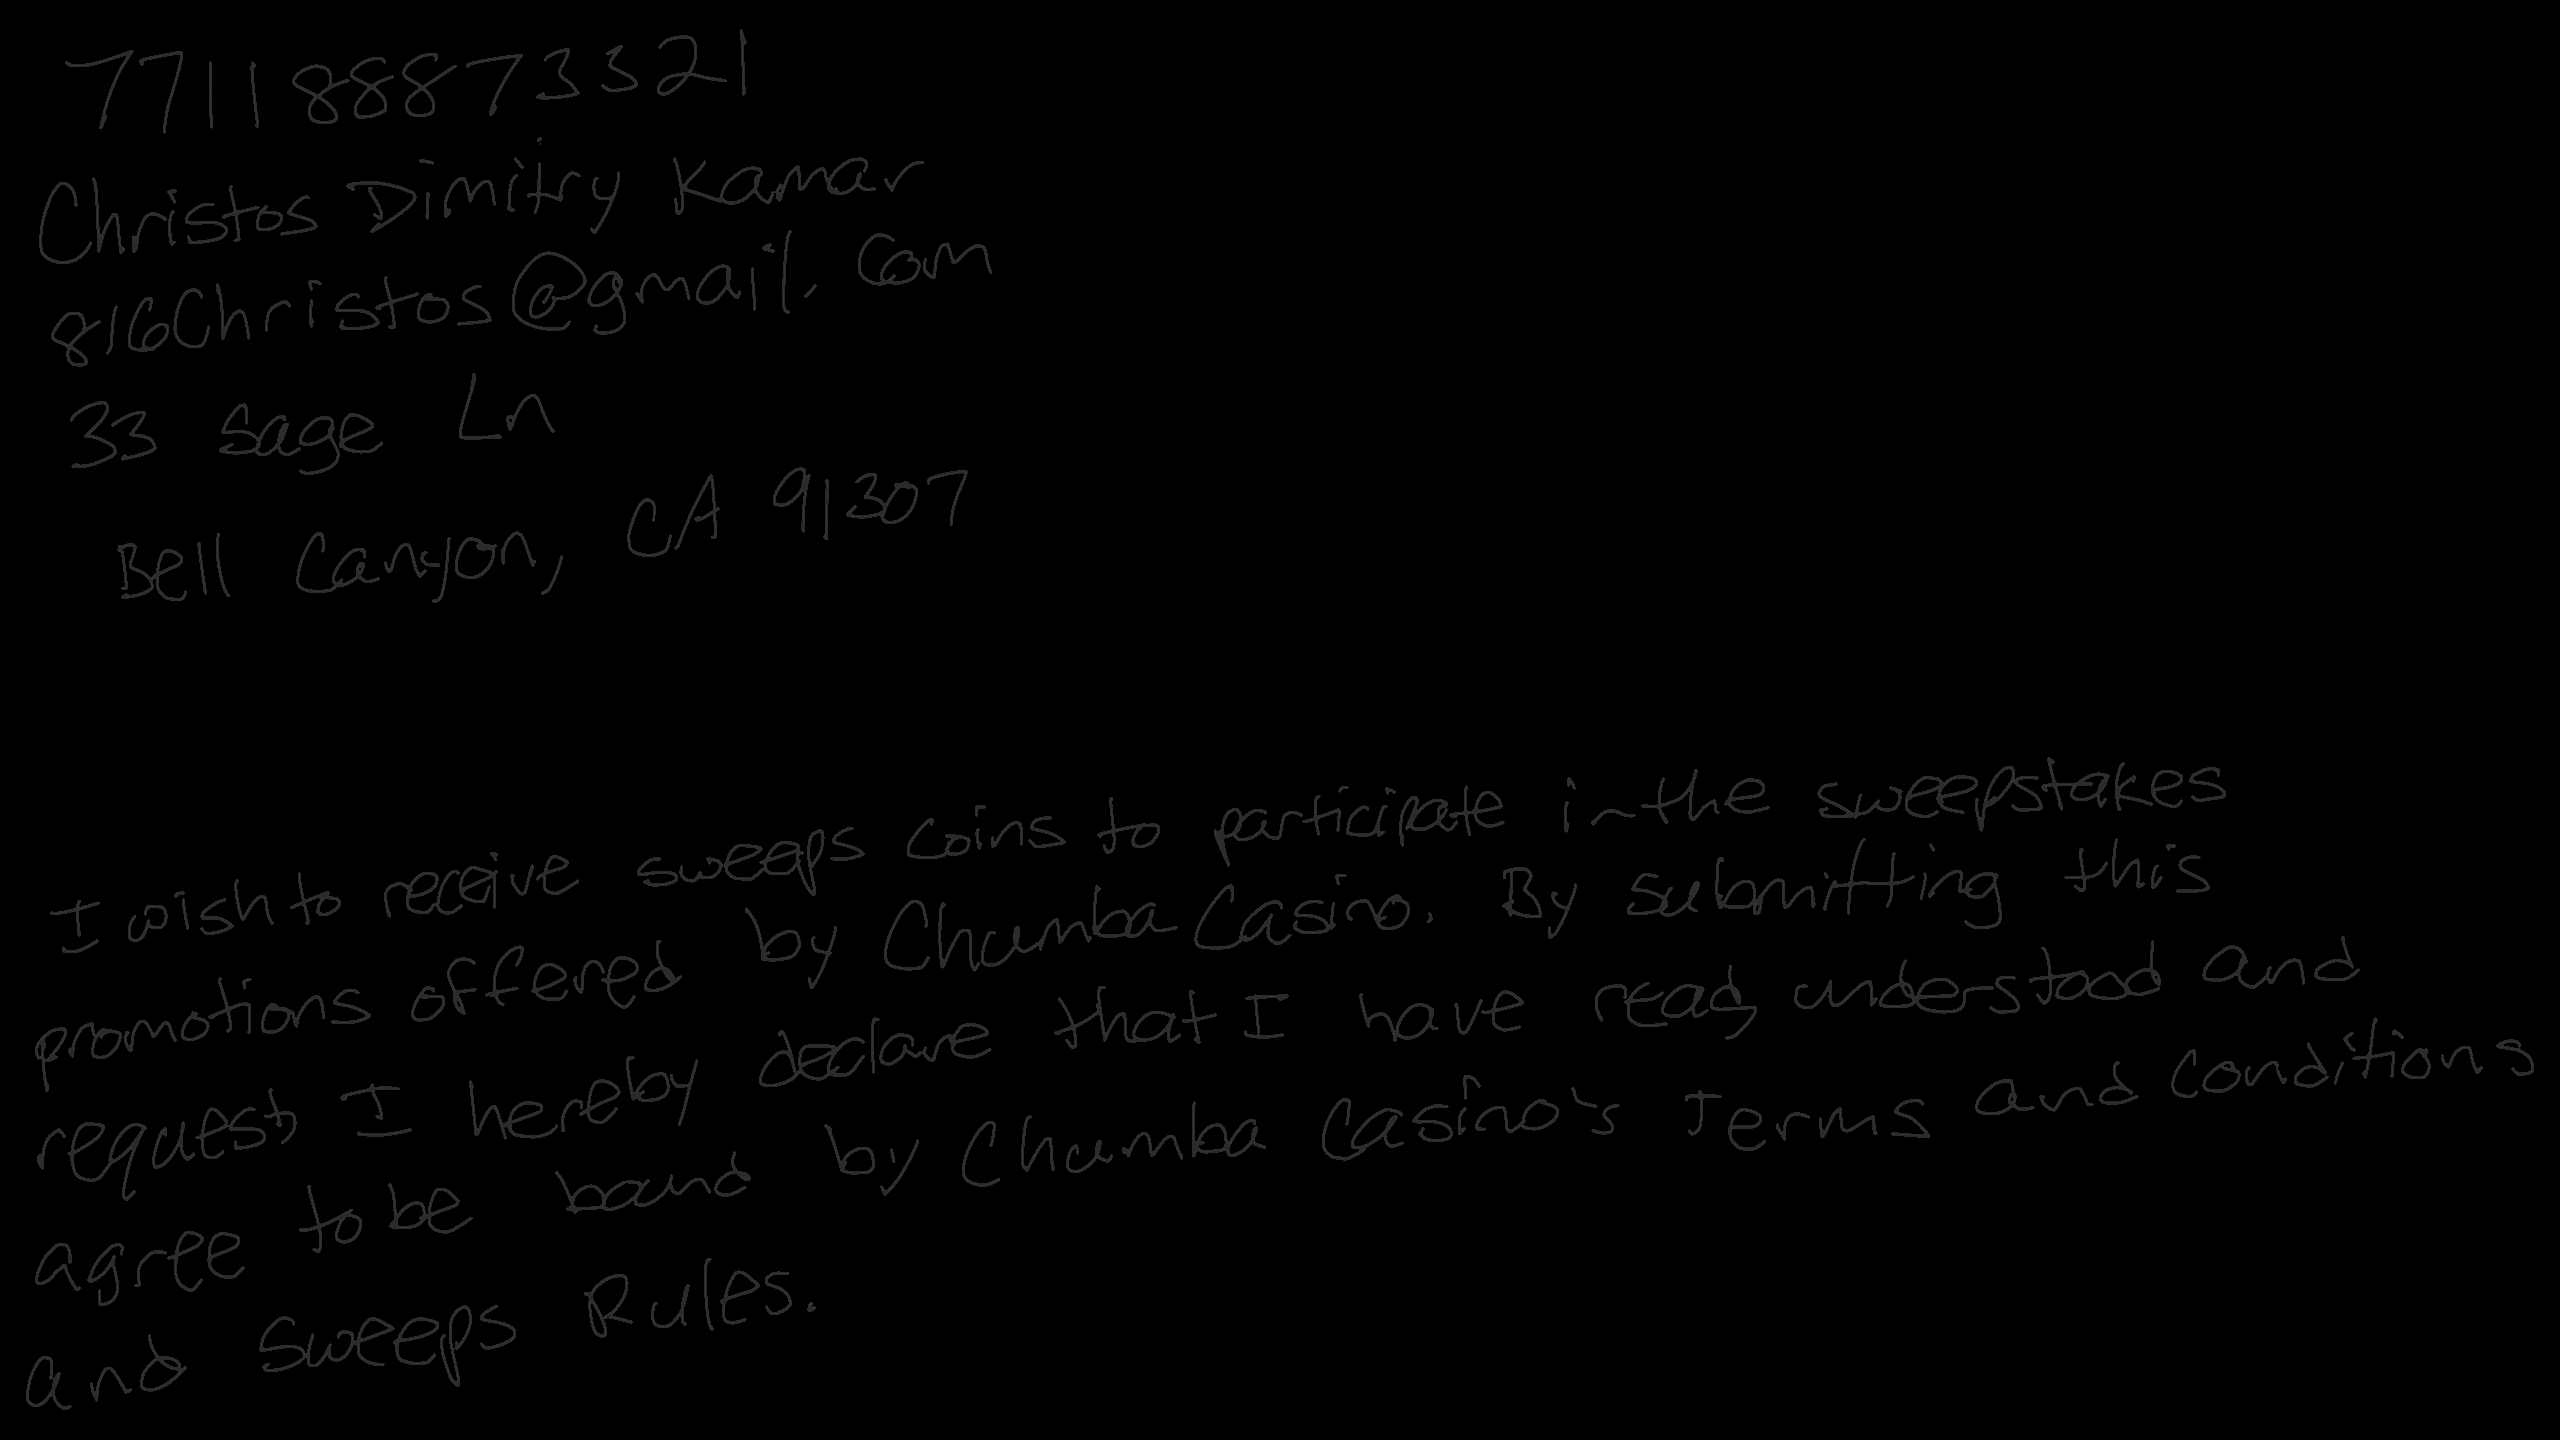 771188873321
Christos Dimitry Kamar
816Christos@gmail.com
33 Sage Ln
Bell Canyon, CA 91307
I wish to receive sweeps coins to participate in the sweepstakes
promotions offered by Chumba Casino. By submitting this
request, I hereby declare that I have read, understood and
agree to be bound by Chumba Casino's Terms and Conditions
and Sweeps Rules.